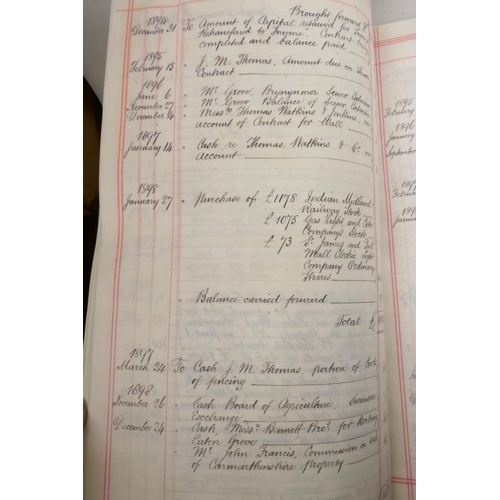 Brought forward £
1894
December 31 To Amount of Capital retained for
retransferred to Income. Contract
completed and balance paid
1895
February 15 " J. M. Thomas, Amount due on
Contract
1896
June 6 " Mr Grove, Brynynmor Sewer
November 27 " Mr Grove Balance of Sewer
December 4 " Messrs Thomas Watkins & Jenkins on
account of Contract for Wall
1897
January 14 " Cash re Thomas, Watkins & Co. on
account
1898
January 27 " Purchase of £1178 Indian Midland
Railway Stock
£1075 Gas Light and Coke
Company's Stock
£73 St. James and Pall
Mall Electric Light
Company Ordinary
Shares
" Balance carried forward
Total £
1897
March 24 To Cash J. M. Thomas, portion of Cost
of fencing
1898
November 26 " Cash Board of Agriculture,
Exchange
December 24 " Cash, Messrs Bennett Bros for
Eaton Grove
" Mr John Francis, Commission on
of Carmarthenshire property
1895
February
1896
January
September
1897
February